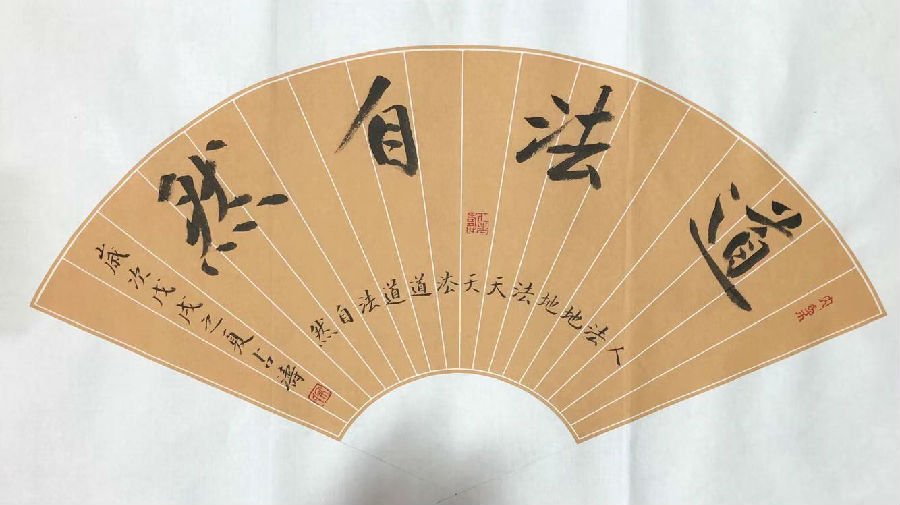 道法自然
人法地地法天天法道道法自然
歲次戊戌之夏濤